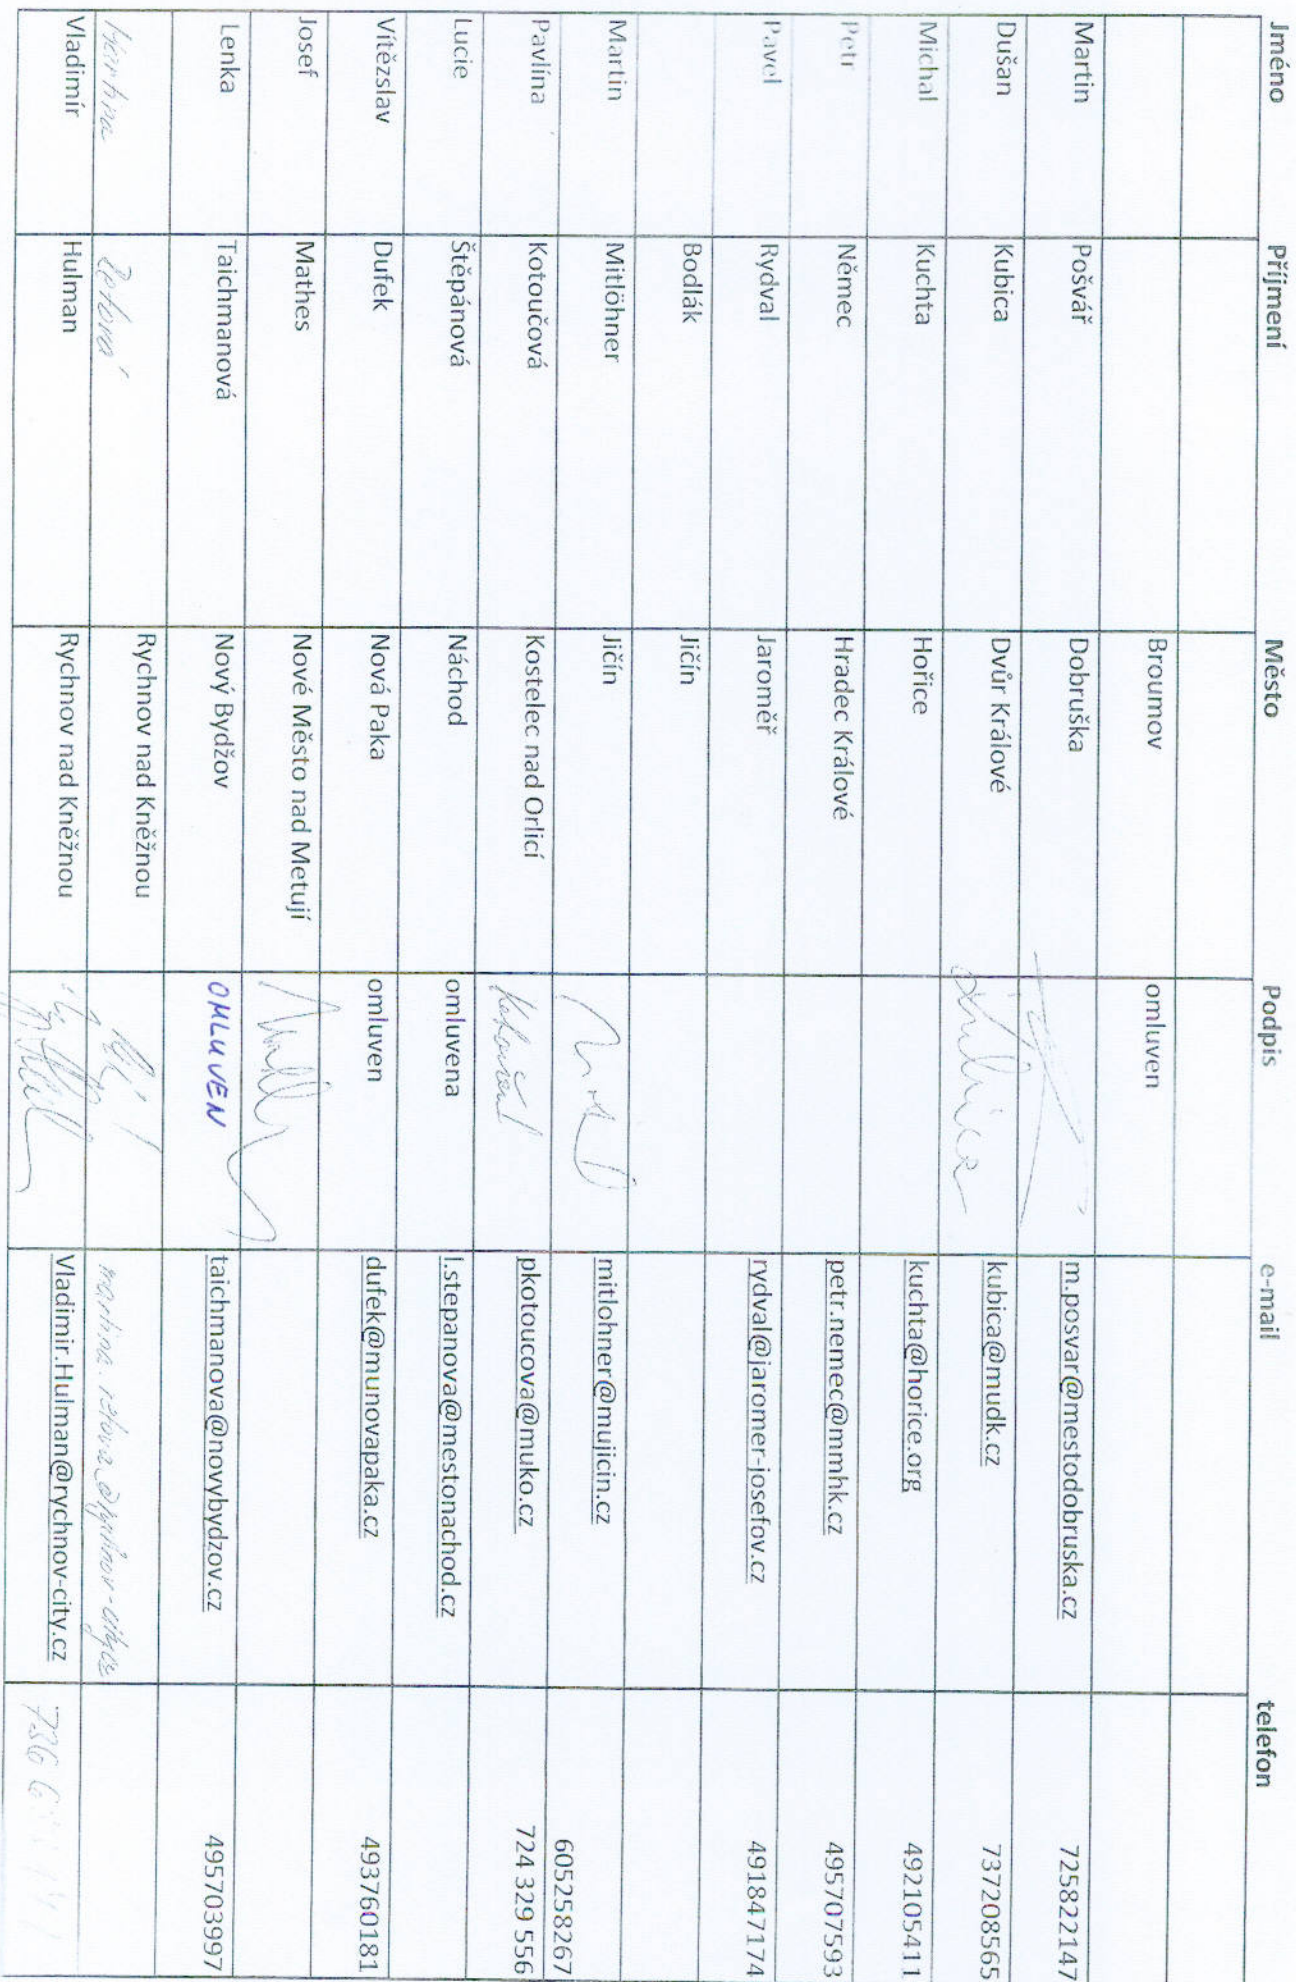 Jméno Příjmení Město Podpis e-mail telefon
Broumov omluven
Martin Pošvář Dobruška m.posvar@mestodobruska.cz 725822147
Dušan Kubica Dvůr Králové Kubica kubica@mudk.cz 737208565
Michal Kuchta Hořice kuchta@horice.org 492105411
Petr Němec Hradec Králové petr.nemec@mmhk.cz 495707593
Pavel Rydval Jaroměř rydval@jaromer-josefov.cz 491847174
Bodlák Jičín
Martin Mitlöhner Jičín mitlohner@mujicin.cz 605258267
Pavlína Kotoučová Kostelec nad Orlicí pkotoucova@muko.cz 724 329 556
Lucie Štěpánová Náchod omluvena l.stepanova@mestonachod.cz
Vítězslav Dufek Nová Paka omluven dufek@munovapaka.cz 493760181
Josef Mathes Nové Město nad Metují
Lenka Taichmanová Nový Bydžov OMLUVEN taichmanova@novybydzov.cz 495703997
Rychnov nad Kněžnou
Vladimír Hulman Rychnov nad Kněžnou Vladimir.Hulman@rychnov-city.cz